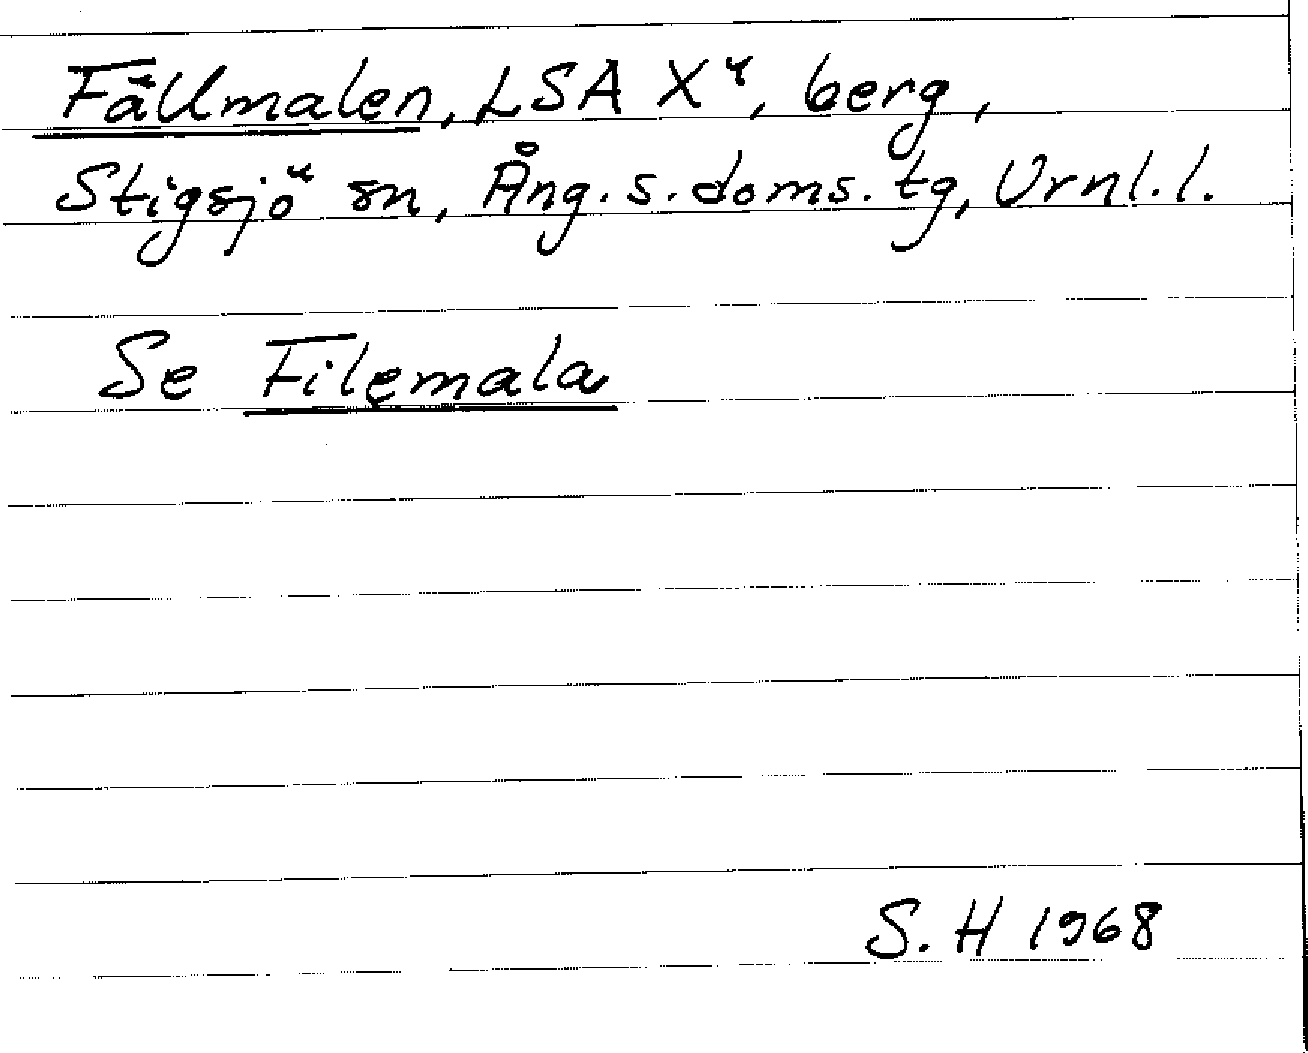 Fällmalen, LSA X⁴, berg,
Stigsjö sn, Ång. s. doms. tg, Vrnl. l.
Se Filęmala
S. H 1968